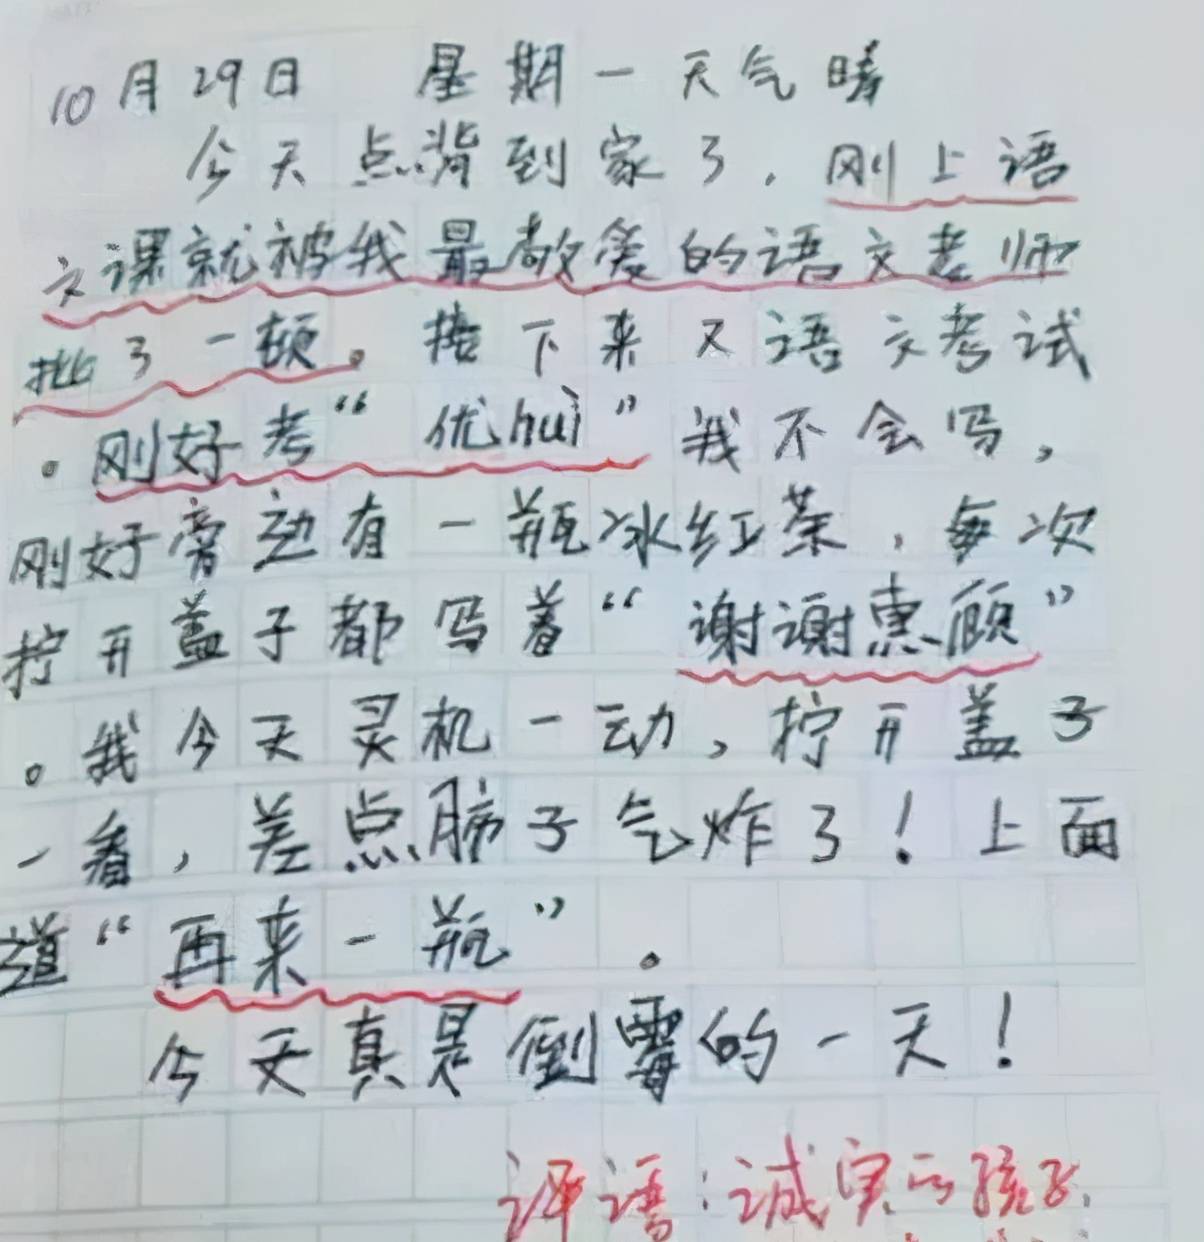 10月29日 星期一 天气晴
今天点背到家了，刚上语
文课就被我最敬爱的语文老师
批了一顿。接下来又语文考试
。刚好考“优huì”我不会写，
刚好旁边有一瓶冰红茶，每次
拧开盖子都写着“谢谢惠顾”
。我今天灵机一动，拧开盖子
一看，差点肺子气炸了！上面
道“再来一瓶”。
今天真是倒霉的一天！
评语：诚实的孩子，